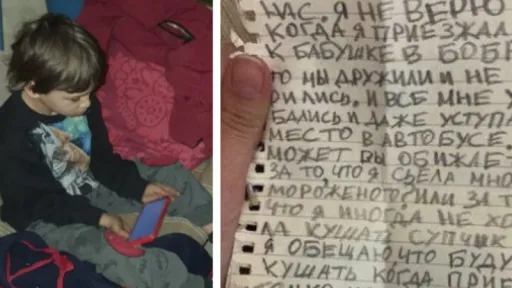 НАС. Я НЕ ВЕРЮ
КОГДА Я ПРИЕЗЖАЛ
К БАБУШКЕ В БОБР
ТО МЫ ДРУЖИЛИ И НЕ
РИЛИСЬ. И ВСЕ МНЕ У
БАЛИСЬ И ДАЖЕ УСТУПА
МЕСТО В АВТОБУСЕ.
МОЖЕТ ВЫ ОБИЖАЕТ
ЗА ТО, ЧТО Я СЬЕЛА МНО
МОРОЖЕНОГО? ИЛИ ЗА Т
ЧТО Я ИНОГДА НЕ ХО
ЛА КУШАТЬ СУПЧИК
Я ОБЕЩАЮ, ЧТО БУДУ
КУШАТЬ КОГДА ПРИЕ